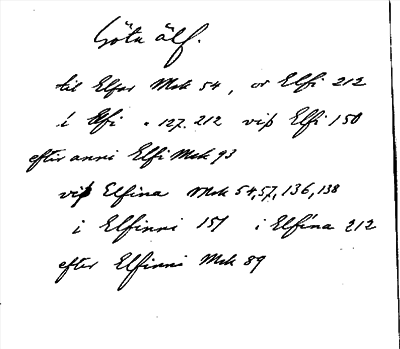 Göta älf.
til Elfar Msk 54, or Elfi 212
í Elfi " 127. 212 viþ Elfi 150
eftir anni Elfi Msk 93
viþ Elfina Msk 54,57,136,138
i Elfinni 151 i Elfína 212
efter Elfinni Msk 89